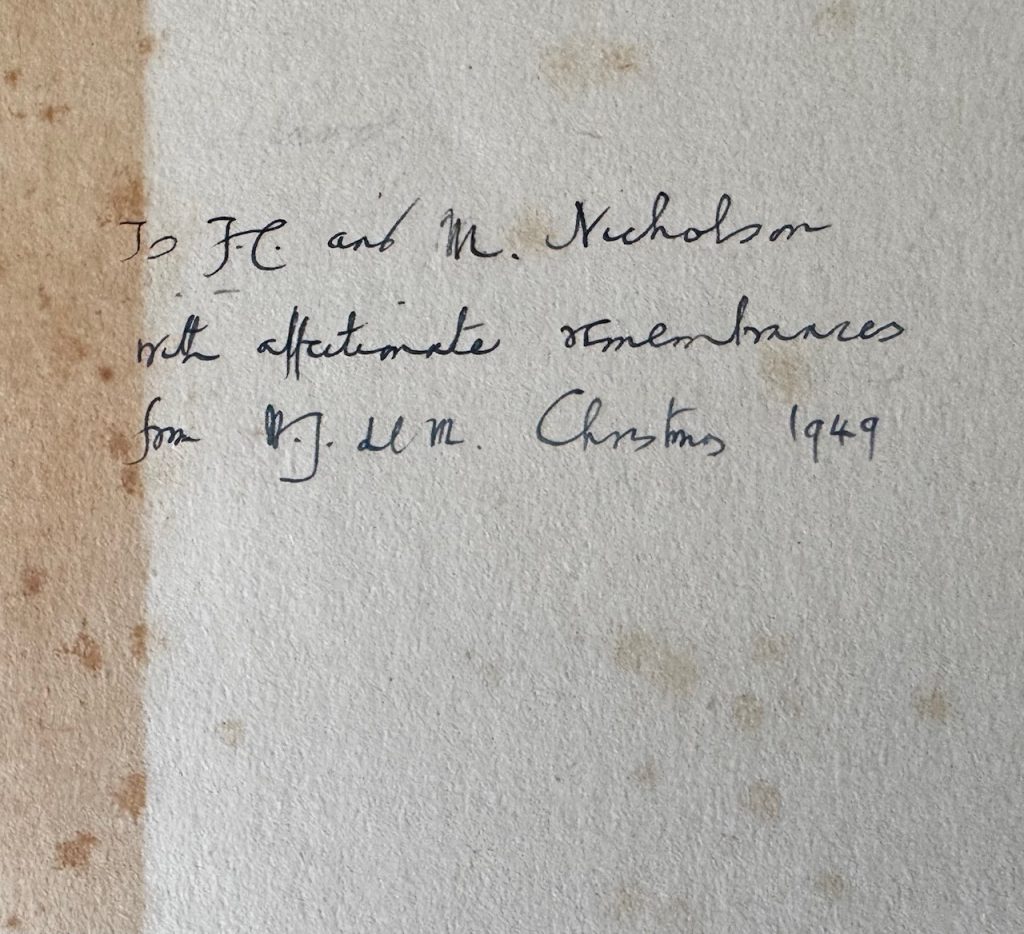 To F.C. and M. Nicholson
with affectionate remembrances
from W.J. de M. Christmas 1949